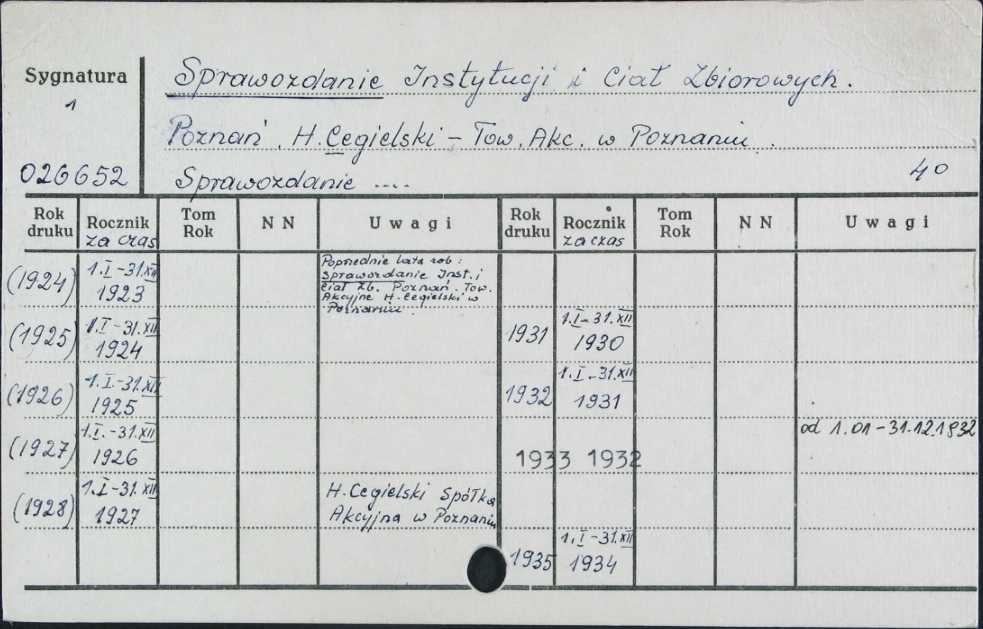 Sygnatura
1
026652
Sprawozdanie Instytucji i Ciał Zbiorowych.
Poznań. H. Cegielski – Tow. Akc. w Poznaniu.
Sprawozdanie ....
40
Rok druku Rocznik za czas Tom Rok NN Uwagi Rok druku Rocznik za czas Tom Rok NN Uwagi
(1924) 1.I–31.XII 1923
Poprzednie lata zob:
Sprawozdanie Inst. i
Ciał Zb. Poznań. Tow.
Akcyjne H. Cegielski w
Poznaniu.
(1925) 1.I–31.XII 1924
1931 1.I–31.XII 1930
(1926) 1.I.–31.XII 1925
1932 1.I–31.XII 1931
(1927) 1.I.–31.XII 1926
1933 1932
od 1.01–31.12.1932
(1928) 1.I–31.XII 1927
H. Cegielski Spółka
Akcyjna w Poznaniu
1935 1.I–31.XII 1934